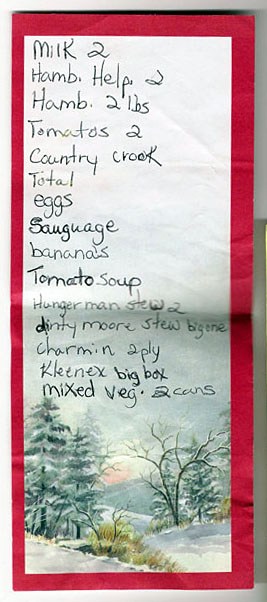 Milk 2
Hamb. Help. 2
Hamb. 2 lbs
Tomatos 2
Country crook
Total
eggs
Sauguage
bananas
Tomato soup
Hungerman stew 2
dinty moore stew big one
Charmin 2ply
Kleenex big box
mixed veg. 2 cans